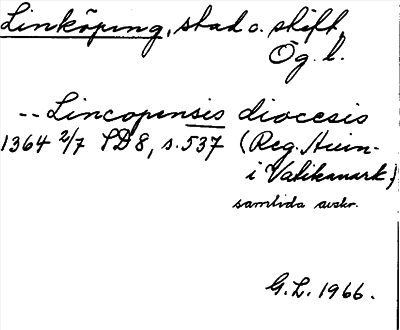 Linköping, stad o. stift,
Ög. l.
-- Lincopensis diocesis
1364 2/7 SD8, s.537 (Reg. Avin-
i Vatikanark.)
samtida avskr.
G.L. 1966.